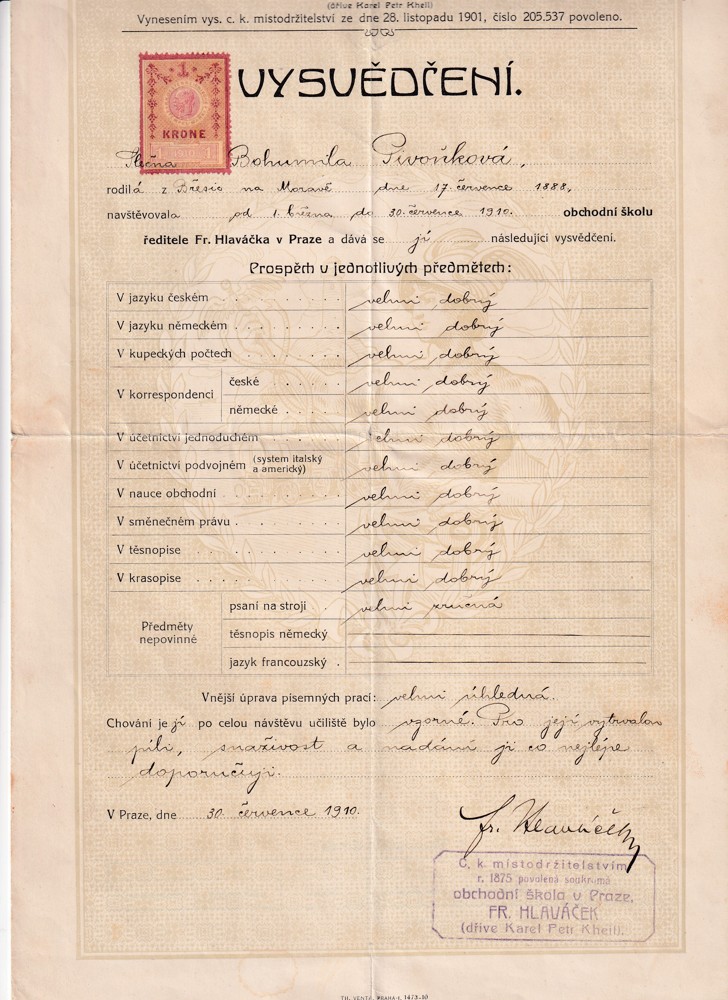 (dříve Karel Petr Kheil)
Vynesením vys. c. k. místodržitelství ze dne 28. listopadu 1901, číslo 205.537 povoleno.
1
KRONE
VYSVĚDČENÍ.
Slečna Bohumila Pivoňková,
rodilá z Březic na Moravě dne 17. července 1888,
navštěvovala od 1. března do 30. července 1910. obchodní školu
ředitele Fr. Hlaváčka v Praze a dává se jí následující vysvědčení.
Prospěch v jednotlivých předmětech:
V jazyku českém velmi dobrý
V jazyku německém velmi dobrý
V kupeckých počtech velmi dobrý
V korrespondenci české velmi dobrý
německé velmi dobrý
V účetnictví jednoduchém velmi dobrý
V účetnictví podvojném (system italský a americký) velmi dobrý
V nauce obchodní velmi dobrý
V směnečném právu velmi dobrý
V těsnopise velmi dobrý
V krasopise velmi dobrý
Předměty nepovinné psaní na stroji velmi zručná
těsnopis německý
jazyk francouzský
Vnější úprava písemných prací: velmi úhledná.
Chování je jí po celou návštěvu učiliště bylo vzorné. Pro její vytrvalou
píli, snaživost a nadání ji co nejlépe
doporučuji.
V Praze, dne 30. července 1910.
Fr. Hlaváček
C. k. místodržitelstvím
r. 1875 povolená soukromá
obchodní škola v Praze,
FR. HLAVÁČEK
(dříve Karel Petr Kheil).
PRAHA-I. 1473-10